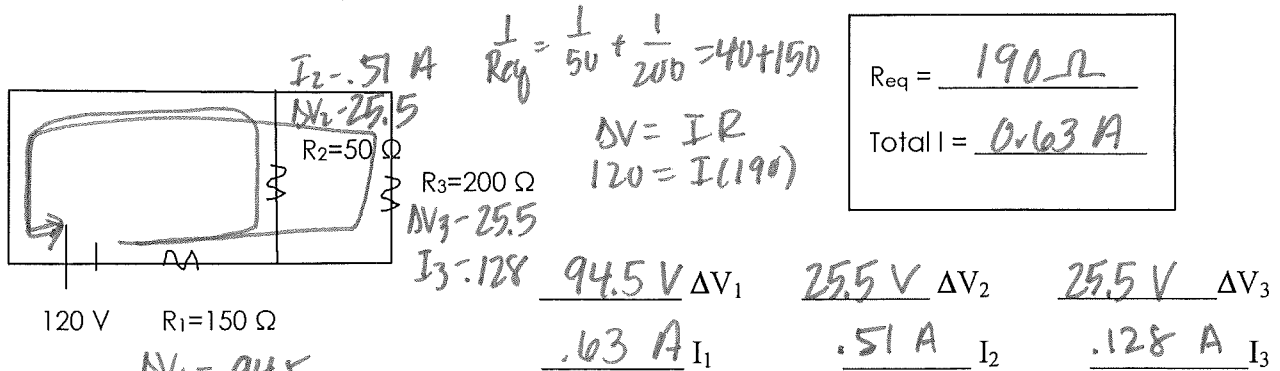 I₂-.51 A
ΔV₂-25.5
R₂=50 Ω
R₃=200 Ω
ΔV₃-25.5
I₃-.128
120 V R₁=150 Ω
1/Req = 1/50 + 1/200 =40+150
ΔV = IR
120 = I(190)
Req = 190 Ω
Total I = 0.63 A
94.5 V ΔV₁ 25.5 V ΔV₂ 25.5 V ΔV₃
.63 A I₁ .51 A I₂ .128 A I₃